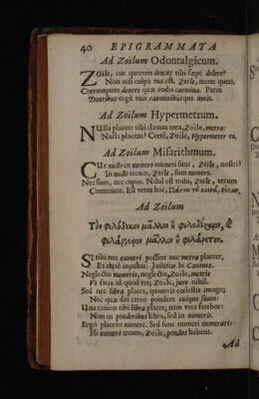 40 EPIGRAMMATA
Ad Zoilum Odontalgicum.
Zoile, cur quereris dentes tibi sæpe dolere?
Non nisi culpa tua est, Zoile, mitte queri.
Corrumpunt dentes quæ rodis carmina. Parce
Dentibus ergò tuis carminibusque meis.
Ad Zoilum Hypermetrum.
Nulla placent tibi claudi mea, Zoile, metra:
Nulla placens? Certè, Zoile, Hypermeter es.
Ad Zoilum Misarithmum.
Cur nullo in numero numeri sunt, Zoile, nostri?
In nullo tecum, Zoile, sunt numero.
Nec sum, nec cupio. Nihil est mihi, Zoile, tecum
Commune. Est verùm hoc, Πάντα τὰ κοινὰ φίλων.
Ad Zoilum
Τὸν φιλόδικον μᾶλλον ἢ φιλοδίκαιον, &
φιλάργυρον μᾶλλον ἢ φιλάρετον.
Si tibi nec numeri possint nec metra placere,
Es certè injustus: Justitiæ hi Canones.
Neglectis numeris, neglectis, Zoile, metris
Fi facis ad quod vis, Zoile, jure nihil.
Sed nec libra places, quamvis cœlestis imago;
Nec quæ dat certo pondere cuique suum:
Una tamen tibi libra placet, nam vera fatebor:
Non in ponderibus libra, sed in numeris.
Ergò placent numeri. Sed sunt numeri numerati:
Hi numeri tecum, Zoile, pondus habent.
Ad